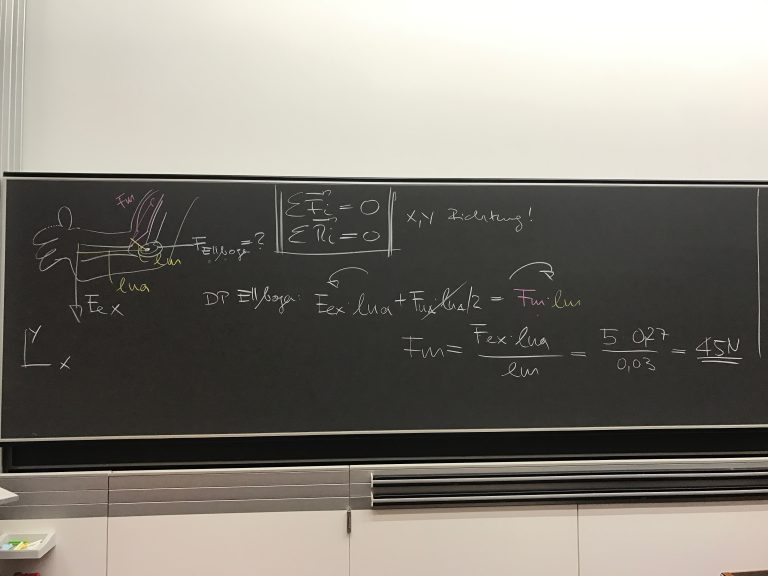 Fm
F Ellboge = ?
lm
lua
Fex
Y
X
ΣF⃗i = 0
ΣM⃗i = 0
X, Y Richtung!
DP Ellboge: Fex · lua + Fua · lua/2 = Fm · lm
Fm = Fex · lua / lm = 5 · 0,27 / 0,03 = 45N